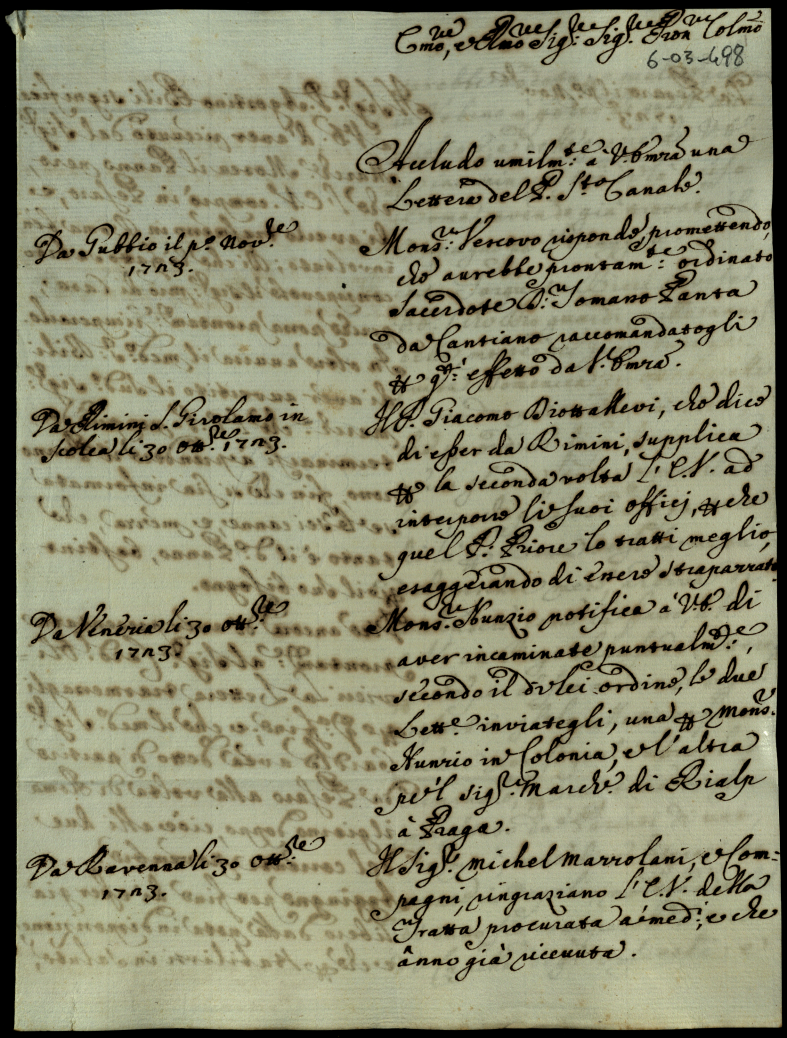 Emo, e Rmo Sig.re Sig.re Pron Colmo
6-03-498
Accludo umilm.te à V. Emza una
Lettera del P. S.to Canale.
Da Gubbio il p.o Nov.re
1723.
Mons.r Vescovo risponde, promettendo,
che aurebbe prontam.te ordinato
Sacerdote D.
da Cantiano raccomandatogli
effetto da V. Emza.
Da Rimini S. Girolamo in
li 30 Ott.re 1723.
Il P. Giacomo Diottallevi, che dice
di esser da Rimini, supplica
la seconda volta l'E.V. ad
interporre li suoi officj, che
quel P. Priore lo tratti meglio,
esaggerando di essere strapazzato
Da Venezia li 30 Ott.re
1723.
Mons.r Nunzio notifica à V.E. di
aver incaminate puntualm.te,
secondo il di lei ordine, le due
Lett.e inviategli, una Mons.r
Nunzio in Colonia, e l'altra
pe'l sig.r March.e di Rialp
à Praga.
Da Ravenna li 30 Ott.re
1723.
Il Sig.r Michel Marzolani, e Com-
pagni, ringraziano l'E.V. della
Tratta procurata a' med.i, e che
ànno già riceuuta.